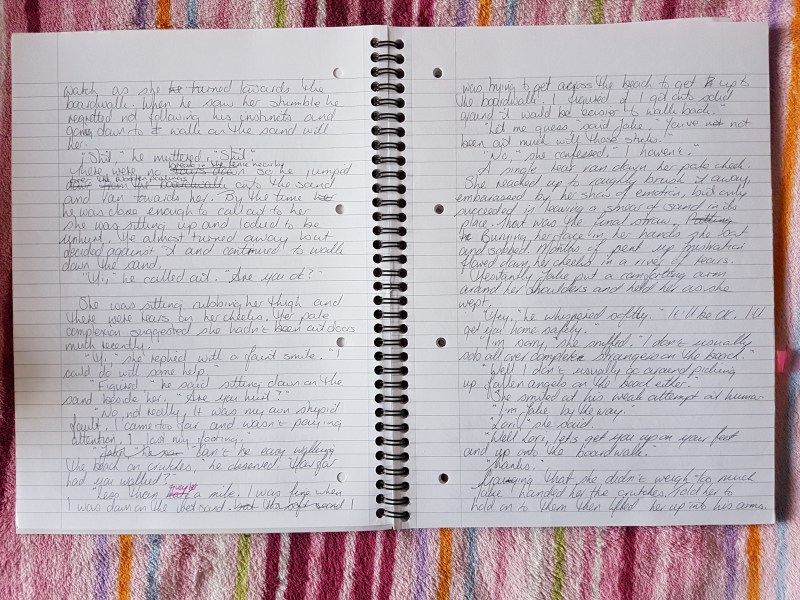 watch as she turned towards the
boardwalk. When he saw her stumble he
regretted not following his instincts and
going down to walk on the sand with
her.
"Shit," he muttered. "Shit"
There were no break in the fence nearby
stairs down so he jumped
over the wooden
from the boardwalk onto the sand
and ran towards her. By the time
he was close enough to call out to her
she was sitting up and looked to be
unhurt. He almost turned away but
decided against it and continued to walk
down the sand.
"Hi," he called out. "Are you ok?"
She was sitting rubbing her thigh and
there were tears on her cheeks. Her pale
complexion suggested she hadn't been outdoors
much recently.
"Hi," she replied with a faint smile. "I
could do with some help."
"Figured," he said sitting down on the
sand beside her. "Are you hurt?"
"No, not really. It was my own stupid
fault. I came too far and wasn't paying
attention. I lost my footing."
"Can't be easy walking
the beach on crutches," he observed. "How far
had you walked?"
"Less than a mile. I was fine when
I was down on the hard sand. I
was trying to get across the beach to get up to
the boardwalk. I figured if I got onto solid
ground it would be easier to walk back."
"Let me guess," said Jake, "You've not
been out much with those sticks."
"No," she confessed, "I haven't."
A single tear ran down her pale cheek.
She reached up to roughly brush it away,
embarrassed by her show of emotion, but only
succeeded in leaving a smear of sand in its
place. That was the final straw.
Burying her face in her hands she sat
and sobbed. Months of pent up frustration
flowed down her cheeks in a river of tears.
Hesitantly Jake put a comforting arm
around her shoulders and held her as she
wept.
"Hey," he whispered softly. "It'll be ok. I'll
get you home safely."
"I'm sorry," she sniffed. "I don't usually
sob all over complete strangers on the beach."
"Well I don't usually go around picking
up fallen angels on the beach either."
She smiled at his weak attempt at humor
"I'm Jake by the way."
"Lori," she said.
"Well Lori, let's get you up on your feet
and up onto the boardwalk."
"Thanks."
Praying that she didn't weigh too much
Jake handed her the crutches, told her to
hold on to them then lifted her up into his arms.